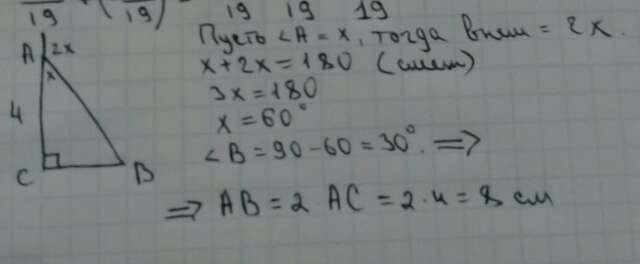 19 19 19 19 19
Пусть <A = x, тогда внеш = 2x.
x+2x=180 (смеж)
3x=180
x=60°
<B = 90-60=30°. =>
=> AB = 2 AC = 2·4 = 8 см
A 2x
x
4
C
B